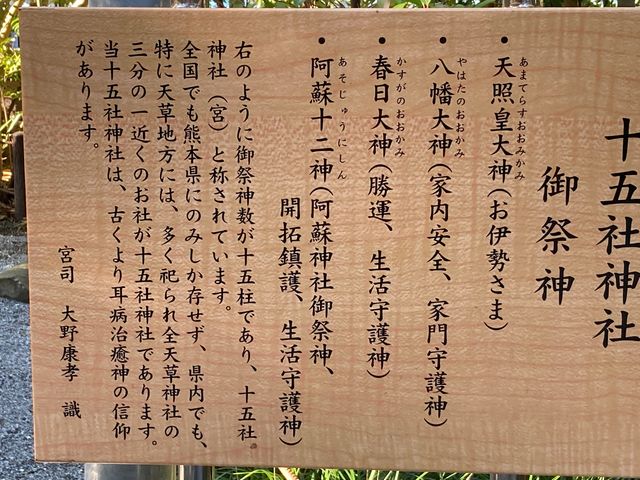 十五社神社
御祭神
・天照皇大神(お伊勢さま)
あまてらすおおみかみ
・八幡大神(家内安全、家門守護神)
やはたのおおかみ
・春日大神(勝運、生活守護神)
かすがのおおかみ
・阿蘇十二神(阿蘇神社御祭神、
あそじゅうにしん
開拓鎮護、生活守護神)
右のように御祭神数が十五柱であり、十五社。
神社(宮)と称されています。
全国でも熊本県にのみしか存せず、県内でも、
特に天草地方には、多く祀られ全天草神社の
三分の一近くのお社が十五社神社であります。
当十五社神社は、古くより耳病治癒神の信仰
があります。
宮司 大野康孝 識